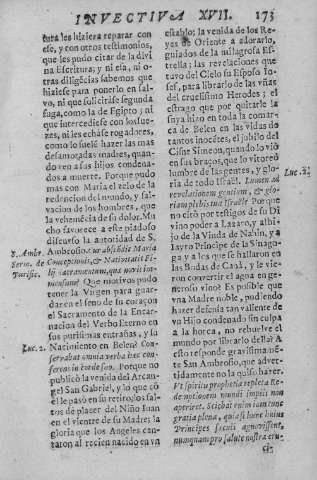 INVECTIVA XVII. 173
tura les hiziera reparar con
ese, y con otros testimonios,
que les pudo citar de la divi
na Escritura; y ni esta, ni o-
tras diligẽcias sabemos que
hiziese para ponerlo en sal-
vo, ni que solicitase segunda
fuga, como la de Egipto; ni
que intercediese con los jue-
zes, ni les echase rogadores,
como lo suelẽ hazer las mas
desamoradas madres, quan-
do ven a sus hijos condena-
dos a muerte. Porque pudo
mas con Maria el zelo de la
redencion del mundo, y sal-
vacion de los hombres, que
la vehemẽcia de su dolor. Mu
cho favorece a este piadoso
discurso la autoridad de S.
S. Ambr.
Serm.
de
Purific.
Ambrosio.
de Conceptionis, & Nativitatis Fi-
lij Sacramentum, quæ novit im-
mensum? Que motivos pudo
tener la Virgen para guar-
dar en el seno de su caraçon
el Sacramento de la Encar-
nacion del Verbo Eterno en
sus purisimas entrañas, y su
Luc. 2.
Nacimiento en Belen? Con-
servabat omnia verba hæc con-
ferens in corde suo. Porque no
publicò la venida del Arcan-
gel San Gabriel, y lo que cõ
èl le pasò en su retiro, los sal-
tos de placer del Niño Iuan
en el vientre de su Madre; la
gloria que los Angeles can-
taron al recien nacido en vn
establo; la venida de los Re-
yes de Oriente a adorarlo,
guiados de la milagrosa Es-
trella; las revelaciones que
tuvo del Cielo su Esposo Io-
sef, para librarlo de las vñas
del cruelisimo Herodes; el
estrago que por quitarle la
suya hizo en toda la comar-
ca de Belen en las vidas de
tantos inocẽtes, el jubilo del
Cisne Simeon, quando lo viò
en sus braços, que lo vitoreò
lumbre de las gentes, y glo-
ria de todo Israel. Lumen ad
Luc. 2.
revelationem gentium, & glo-
riam plebis tuæ Israel? Porque
no citò por testigos de su Di
vino poder a Lazaro, al hi-
jo de la Viuda de Naîn, y a
Iayro Principe de la Sinago-
ga y a les que se hallaron en
las Bodas de Canà, y le vie-
ron convertir el agua en ge-
neroso vino? Es posible que
vna Madre noble, pudiendo
hazer defensa tan valiente de
vn Hijo condenado sin culpa
a la horca, no rebuelve el
mundo por librarlo de ella? A
esto responde gravisimamẽ-
te San Ambrosio, que adver-
tidamente no la quiso hazer.
Vt spiritu prophetiæ repleta Re-
demptionem mundi impij non
aperiret. Sciebat enim tam tunc
gratia plena, quia si hunc huius
Principes sæculi agnovissent,
numquam pro salute nostra cru-
ci-